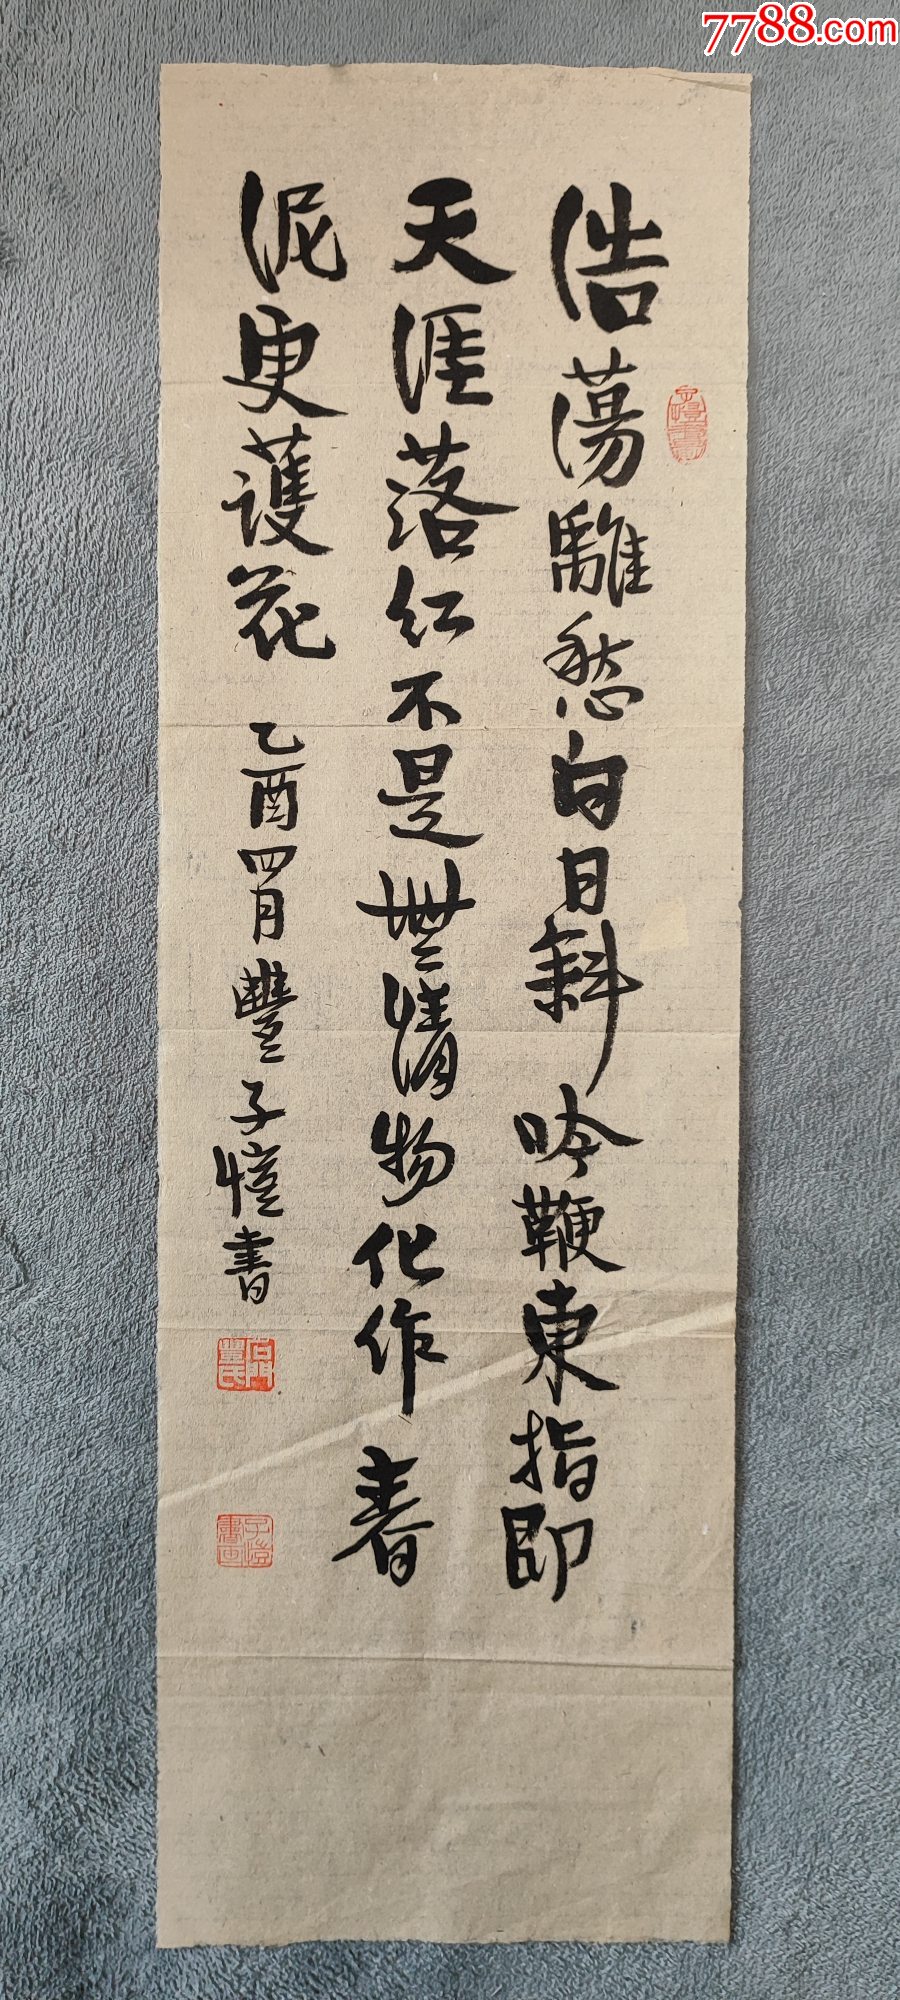 7788.com
浩蕩離愁白日斜吟鞭東指即
天涯落紅不是無情物化作春
泥更護花 乙酉四月豐子愷書
石門豐氏
子愷書画